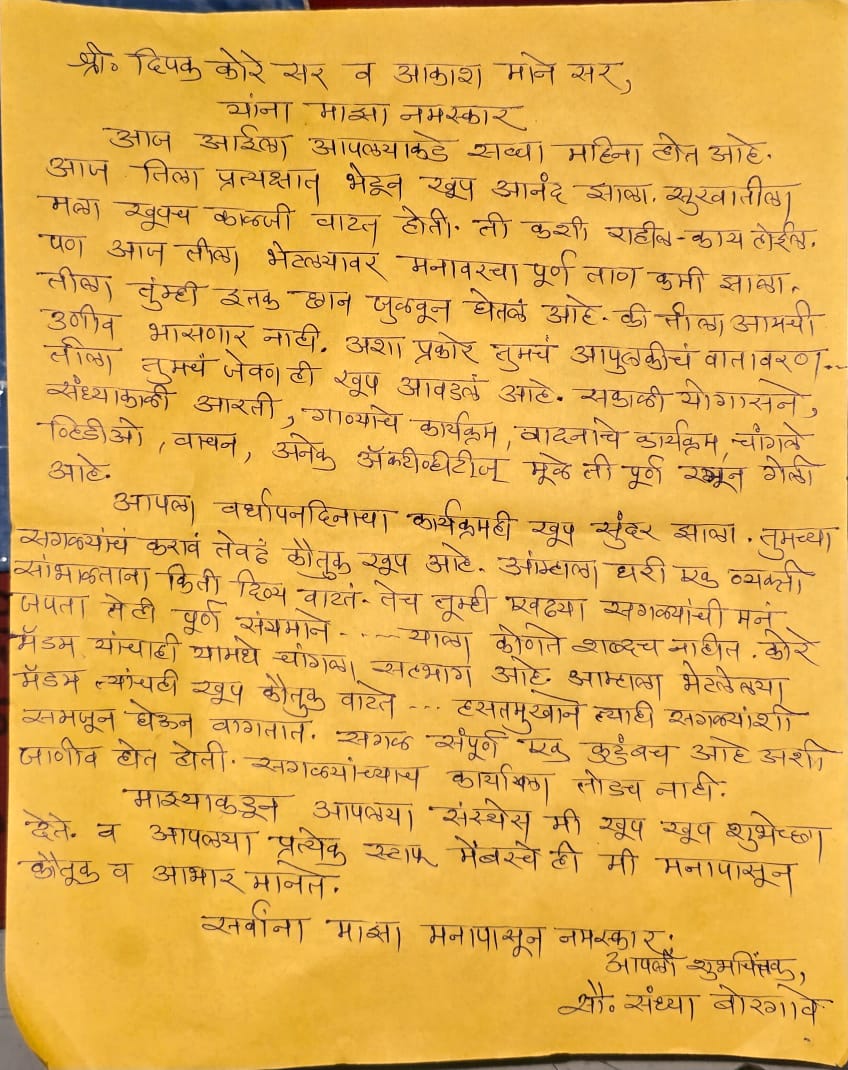 श्री. दिपक कोरे सर व आकाश माने सर,
यांना माझा नमस्कार
आज आईला आपल्याकडे सव्वा महिना होत आहे.
आज तिला प्रत्यक्षात भेटून खूप आनंद झाला. सुरवातीला
मला खूपच काळजी वाटत होती. ती कशी राहील-काय होईल.
पण आज तीला भेटल्यावर मनावरचा पूर्ण ताण कमी झाला.
तीला तुंम्ही इतक छान जुळवून घेतलं आहे. की तीला आमची
उणीव भासणार नाही. अशा प्रकारे तुमचं आपुलकीचं वातावरण...
तीला तुमचं जेवण ही खूप आवडलं आहे. सकाळी योगासने,
संध्याकाळी आरती, गाण्याचे कार्यक्रम, वादनाचे कार्यक्रम, चांगले
व्हिडीओ, वाचन, अनेक ॲक्टीव्हीटीज् मूळे ती पूर्ण रमून गेली
आहे.
आपला वर्धापनदिनाचा कार्यक्रमही खूप सुंदर झाला. तुमच्या
सगळ्यांचं करावं तेवढं कौतुक खूप आहे. आंम्हाला घरी एक व्यक्ती
सांभाळताना किती दिव्य वाटतं. तेच तूम्ही एवढ्या सगळ्यांची मनं
जपता तेही पूर्ण संयमाने .... याला कोणते शब्दच नाहीत. कोरे
मॅडम यांचाही यामधे चांगला सहभाग आहे. आम्हाला भेटलेल्या
मॅडम त्यांचही खूप कौतुक वाटते ... हसतमुखाने त्याही सगळ्यांशी
समजून घेऊन वागतात. सगळ संपूर्ण एक कुटुंबच आहे अशी
जाणीव होत होती. सगळ्यांच्याच कार्याला तोडच नाही.
माझ्याकडून आपल्या संस्थेस मी खूप खूप शुभेच्छा
देते. व आपल्या प्रत्येक स्टाफ मेंबरचे ही मी मनापासून
कौतूक व आभार मानते.
सर्वांना माझा मनापासून नमस्कार.
आपली शुभचिंतक,
सौ. संध्या बोरगावे